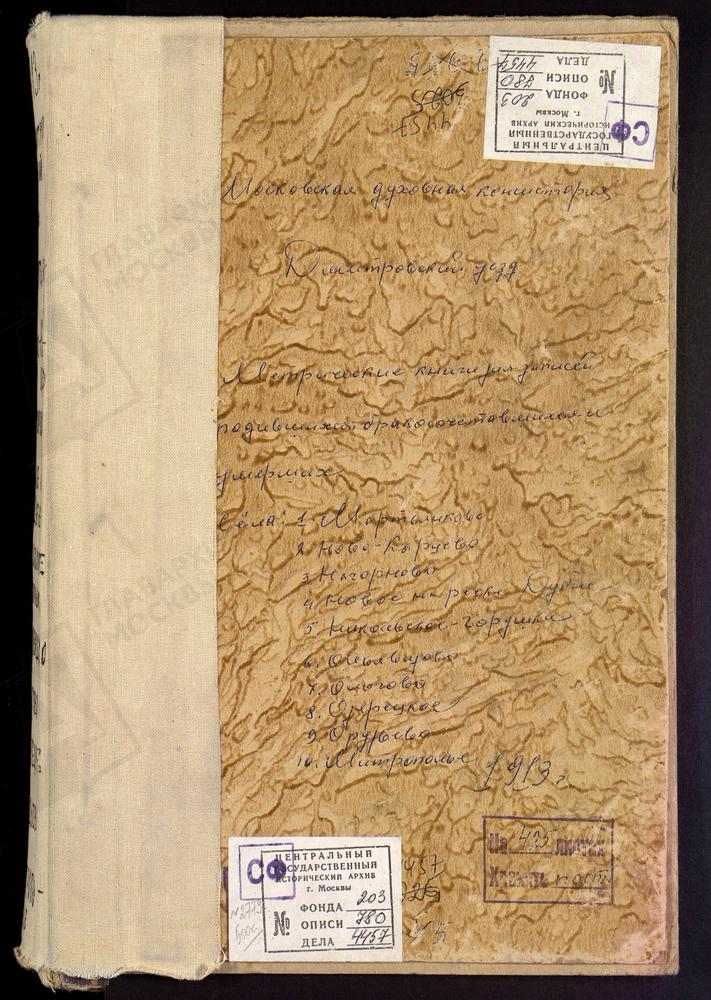 4457
ЦЕНТРАЛЬНЫЙ
ГОСУДАРСТВЕННЫЙ
ИСТОРИЧЕСКИЙ АРХИВ
г. Москвы
ФОНДА 203
№ ОПИСИ 780
ДЕЛА 4457
СФ
Московская духовная консистория
Дмитровский уезд
Метрические книги для записей
родившихся, бракосочетавшихся и
умерших
Сёла: 1. Мартынково
2. Ново-Карцево
3. Нагорново
4. Новое на речке Дубне
5. Никольское-Горушки
6. Ольявидово
7. Ольгово
8. Озерецкое
9. Орудьево
10. Митрополье 1913 г.
На 435 листах
Хранить пост
СФ
ЦЕНТРАЛЬНЫЙ
ГОСУДАРСТВЕННЫЙ
ИСТОРИЧЕСКИЙ АРХИВ
г. Москвы
ФОНДА 203
№ ОПИСИ 780
ДЕЛА 4457
ГЛАВАРХИВ
МОСКВЫ
ГЛАВАРХИВ
МОСКВЫ